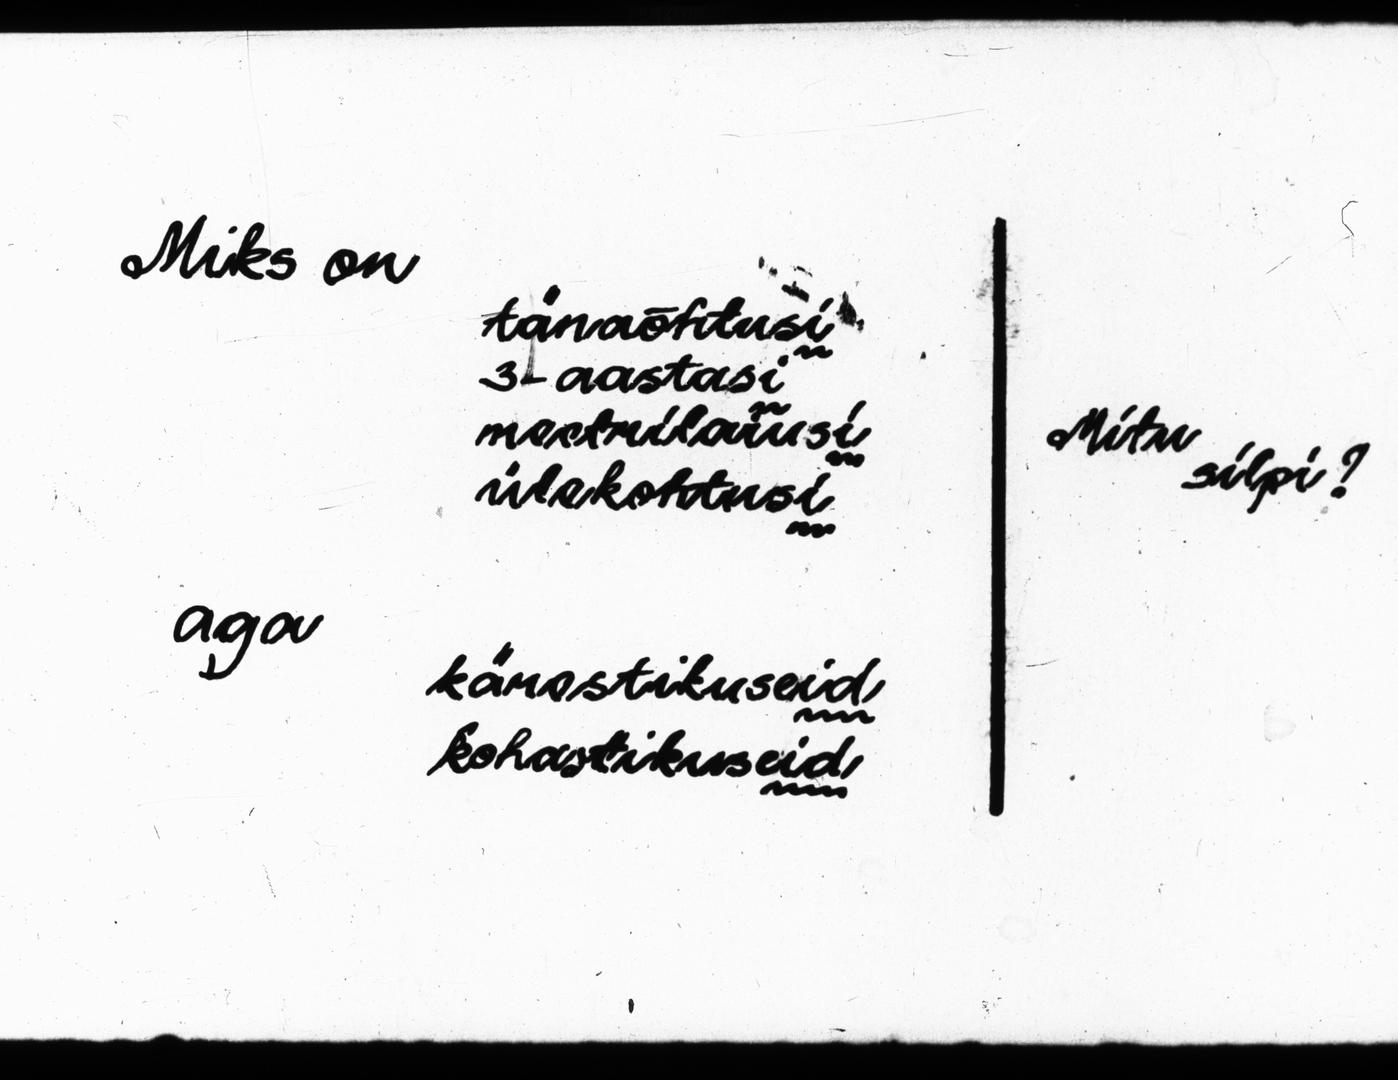 Miks on
tänaõhtusi
3-aastasi
meetrilaiusi
ülekohtusi
aga
känestikuseid
kohastikuseid
Mitu
silpi?